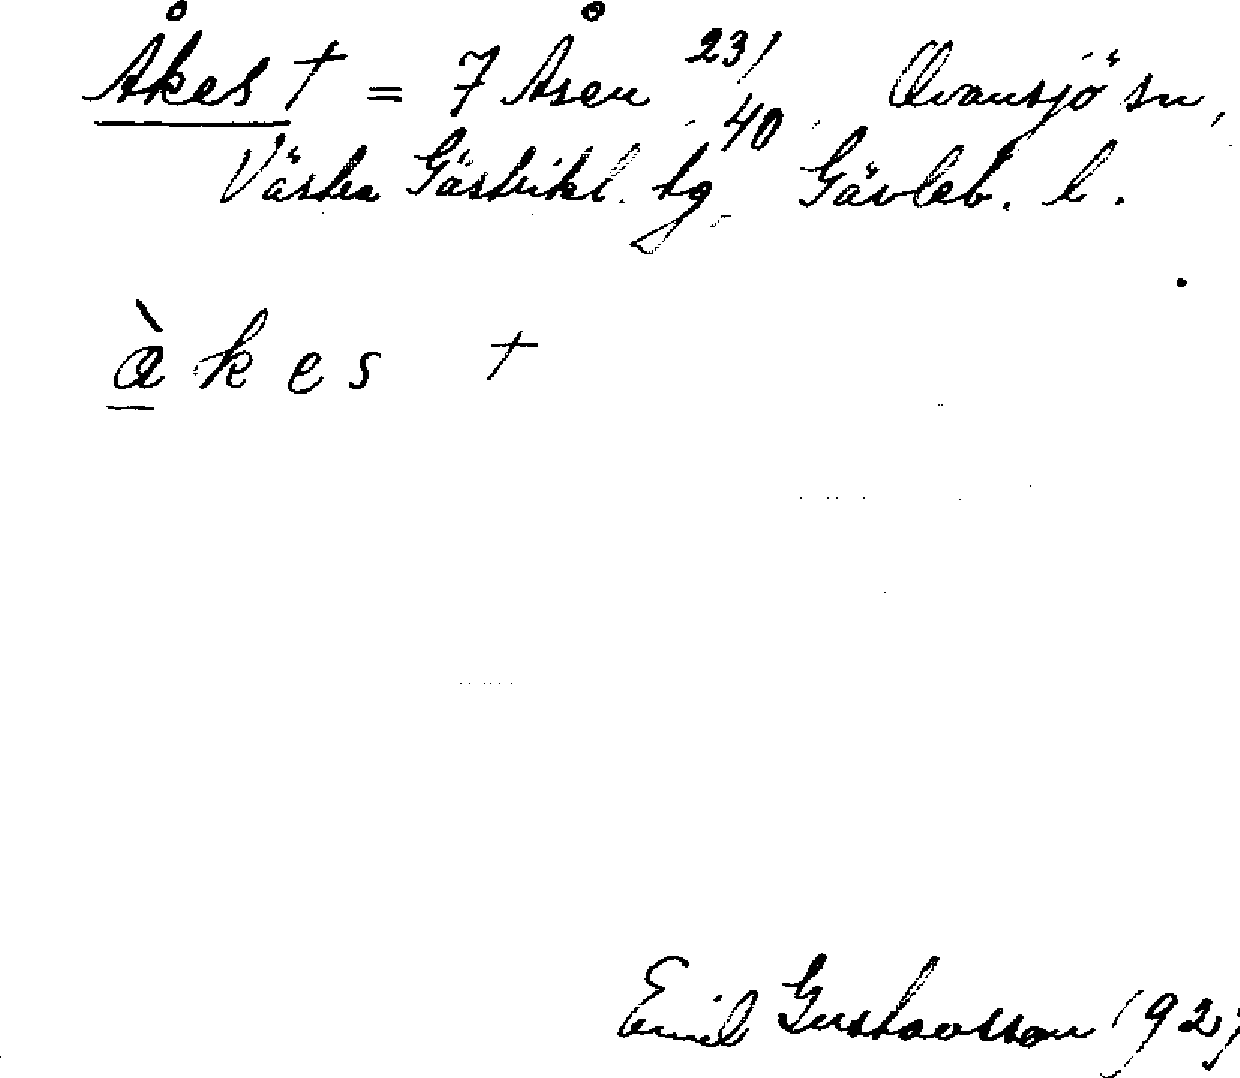 Åkes † = 7 Åsen 23/40 Ovansjö sn,
Västra Gästrikl. tg Gävleb. l.
àkes †
Emil Gustavsson